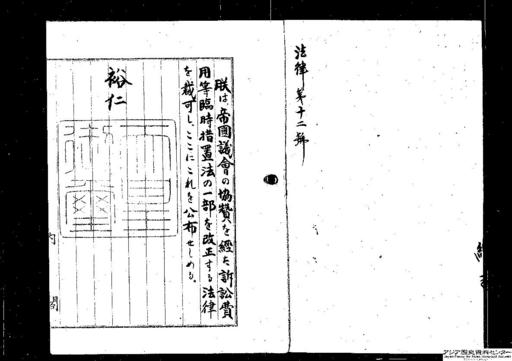 法律第十二號
朕は、帝國議會の協贊を經た訴訟費
用等臨時措置法の一部を改正する法律
を裁可し、ここにこれを公布せしめる。
裕仁
天皇
御璽
内閣
アジア歴史資料センター